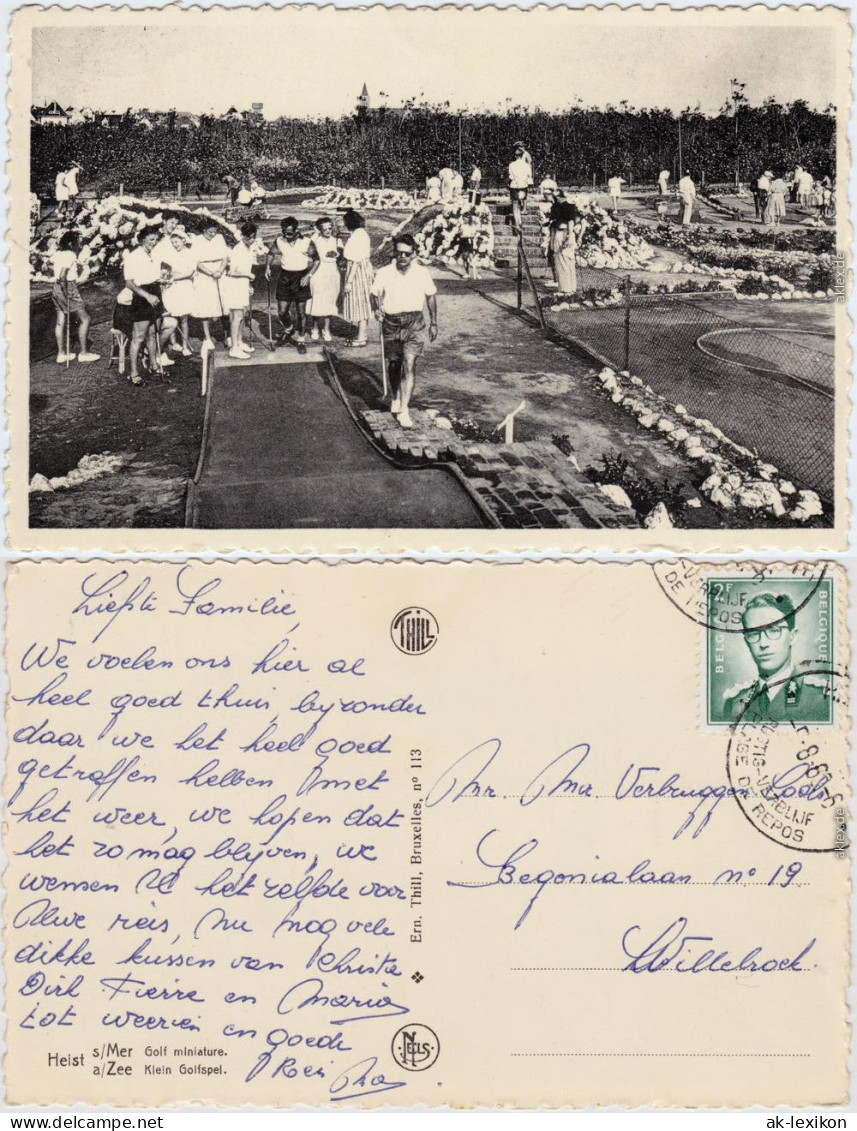 Liefste Familie,
We voelen ons hier al
heel goed thuis, byzonder
daar we het heel goed
getroffen hebben met
het weer, we hopen dat
het zo mag blyven, we
wensen U het zelfde voor
Uwe reis, Nu nog vele
dikke kussen van Christa
Dirk Pierre en Maria
tot weerzien en goede
Reis
Heist s/Mer Golf miniature.
a/Zee Klein Golfspel.
THILL
Ern. Thill, Bruxelles, nº 113
NELS
2F
BELGIE BELGIQUE
-VERBLIJF
DE REPOS
RUSTIG-VERBLIJF
PLAGE DE REPOS
Mr. Mr. Verbruggen
Begonialaan nº 19
Willebroek.
aklex.de
aklex.de
aklex.de
www.delcampe.net
ak-lexikon